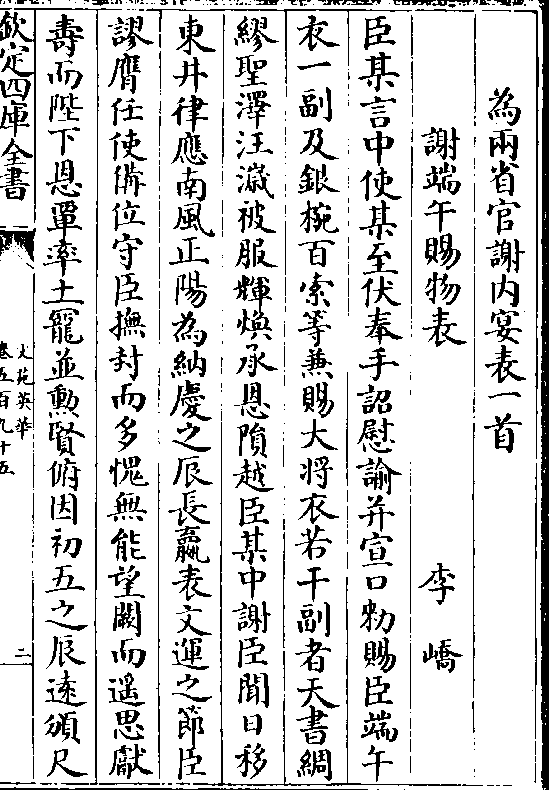 為兩省官謝内宴表一首
謝端午賜物表 李嶠
臣某言中使某至伏奉手詔慰諭并宣口勑賜臣端午
衣一副及銀椀百索等兼賜大將衣若干副者天書綢
繆聖澤汪濊被服輝煥承恩隕越臣某中謝臣聞日移
東井律應南風正陽為納慶之辰長嬴表文運之節臣
謬膺任使備位守臣撫封而多愧無能望闕而遥思獻
壽而陛下恩覃率土寵並勲賢俯因初五之辰逺頒尺
欽定四庫全書
文苑英華
卷五百九十五
二